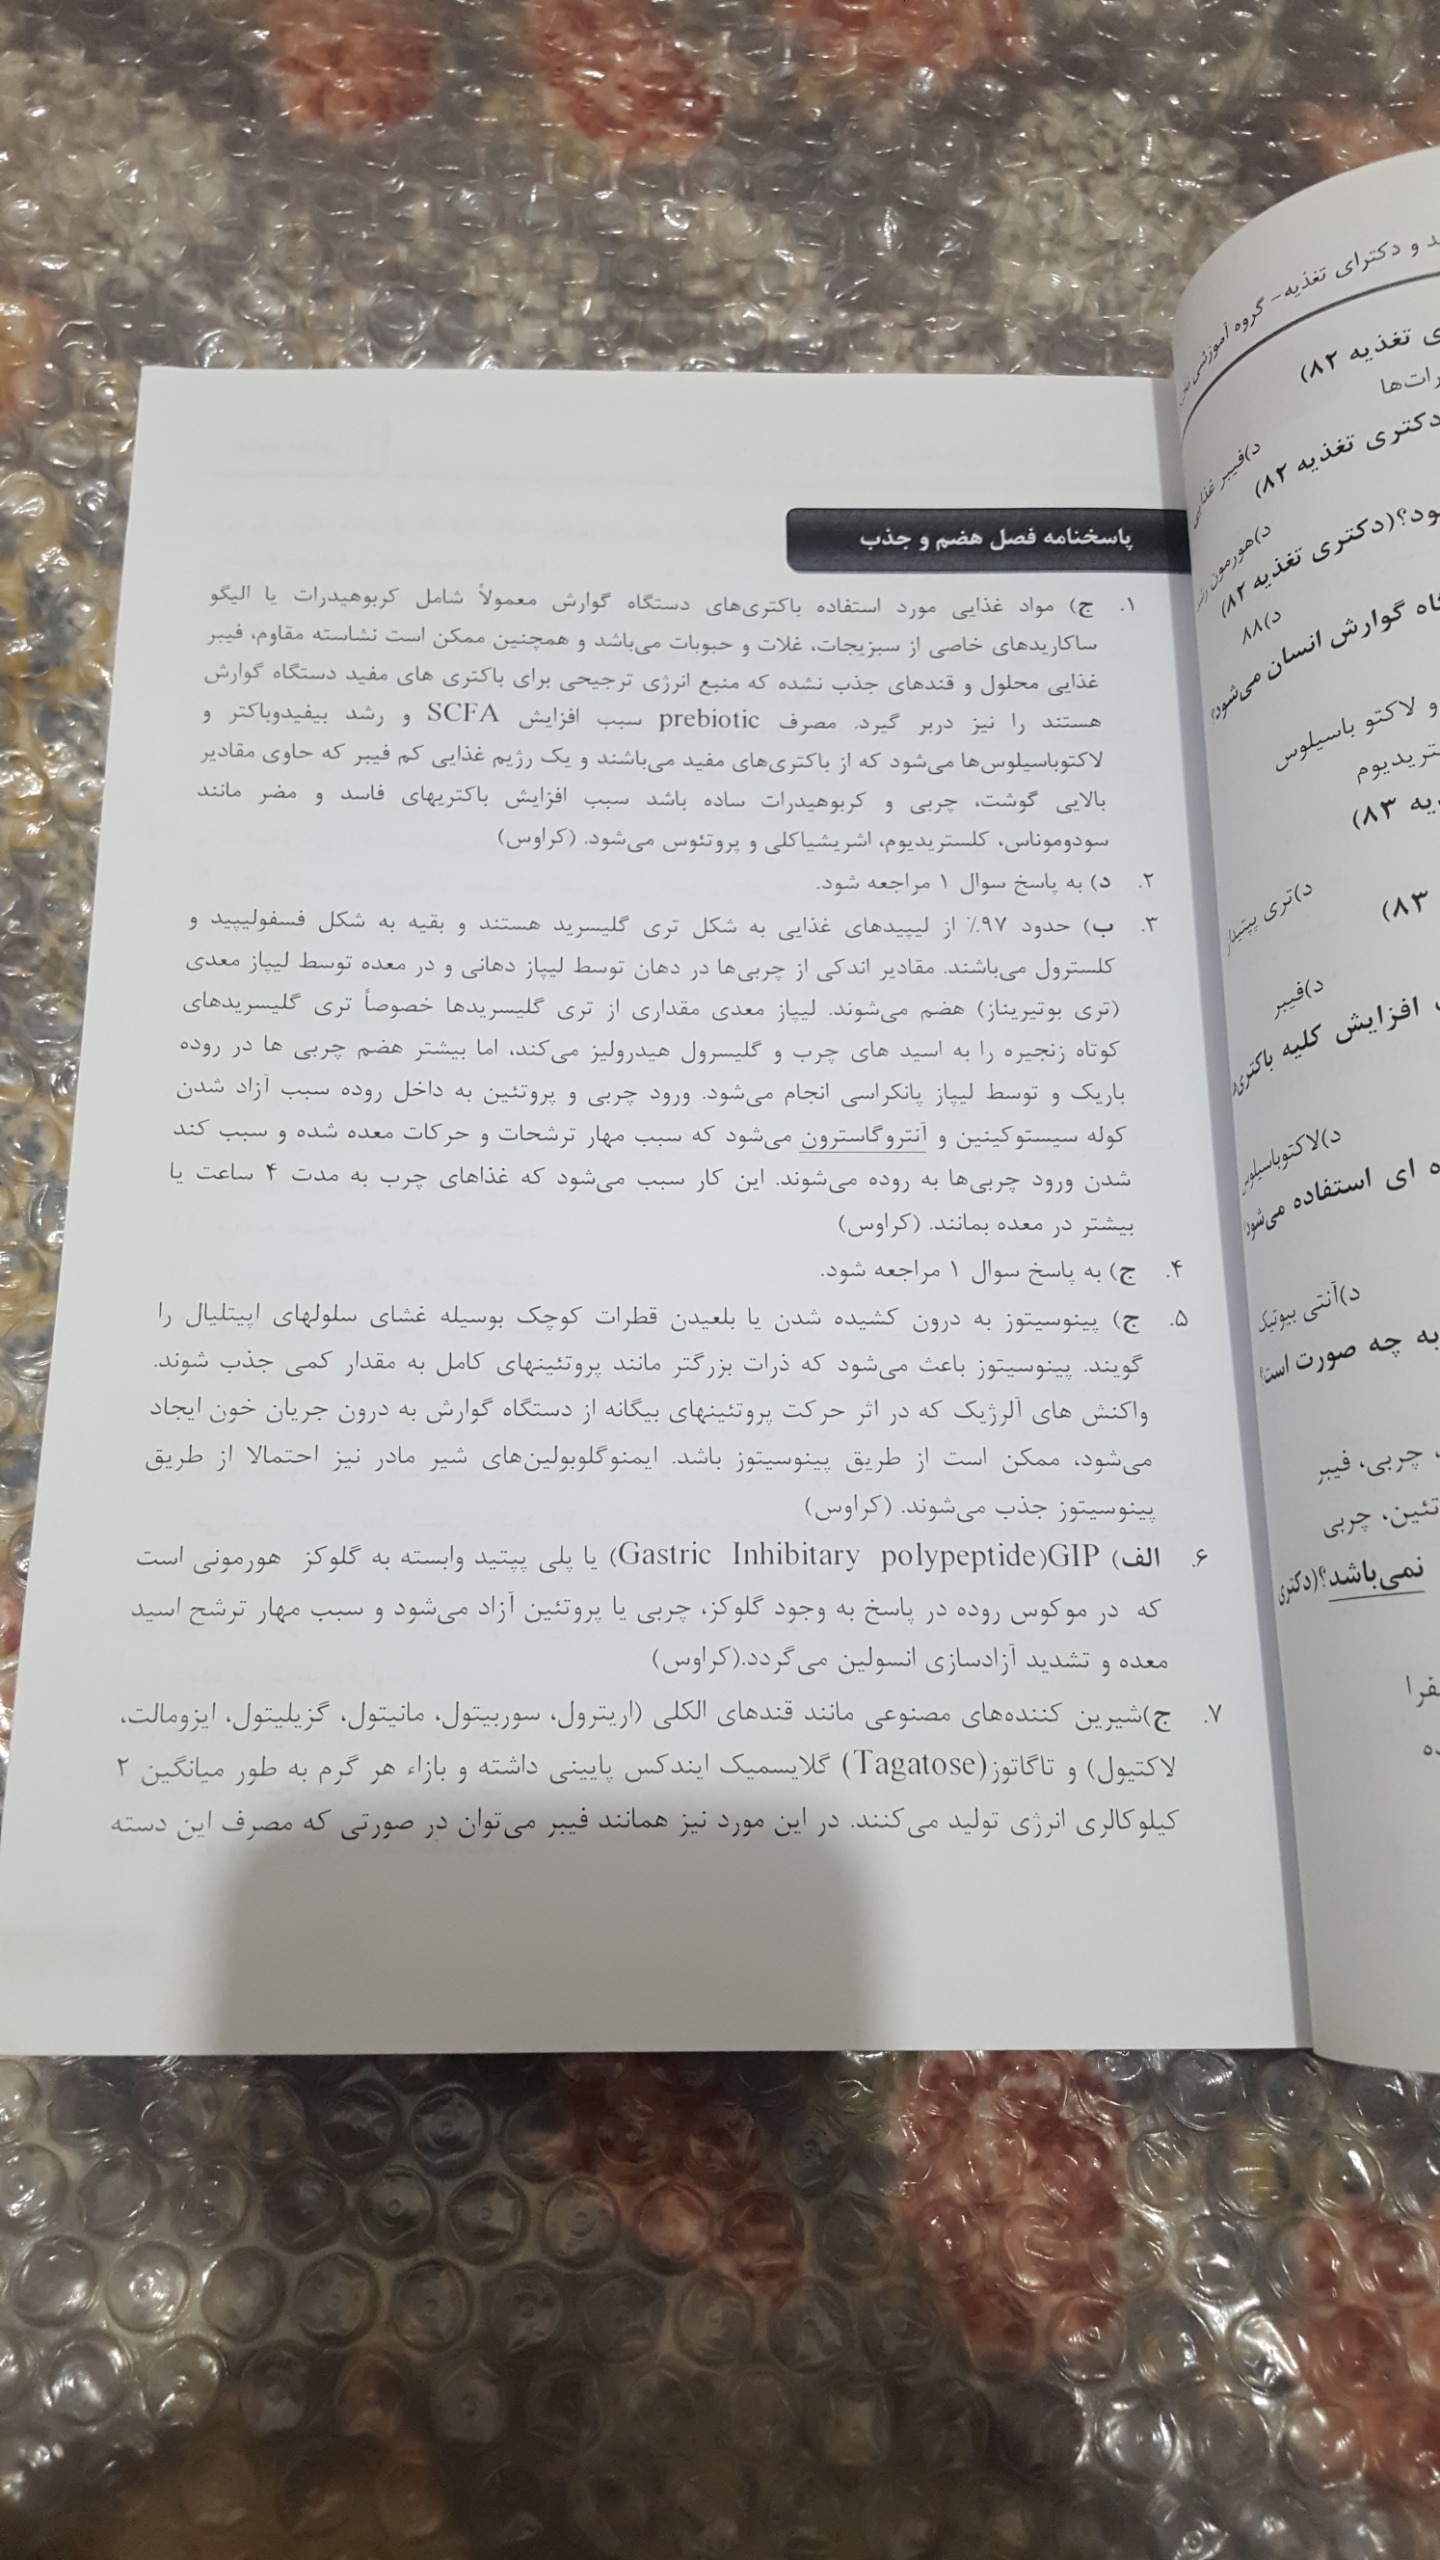 پاسخنامه فصل هضم و جذب
۱. ج) مواد غذایی مورد استفاده باکتری‌های دستگاه گوارش معمولاً شامل کربوهیدرات یا الیگو
ساکاریدهای خاصی از سبزیجات، غلات و حبوبات می‌باشد و همچنین ممکن است نشاسته مقاوم، فیبر
غذایی محلول و قندهای جذب نشده که منبع انرژی ترجیحی برای باکتری های مفید دستگاه گوارش
هستند را نیز دربر گیرد. مصرف prebiotic سبب افزایش SCFA و رشد بیفیدوباکتر و
لاکتوباسیلوس‌ها می‌شود که از باکتری‌های مفید می‌باشند و یک رژیم غذایی کم فیبر که حاوی مقادیر
بالایی گوشت، چربی و کربوهیدرات ساده باشد سبب افزایش باکتریهای فاسد و مضر مانند
سودوموناس، کلستریدیوم، اشریشیاکلی و پروتئوس می‌شود. (کراوس)
۲. د) به پاسخ سوال ۱ مراجعه شود.
۳. ب) حدود ۹۷٪ از لیپیدهای غذایی به شکل تری گلیسرید هستند و بقیه به شکل فسفولیپید و
کلسترول می‌باشند. مقادیر اندکی از چربی‌ها در دهان توسط لیپاز دهانی و در معده توسط لیپاز معدی
(تری بوتیریناز) هضم می‌شوند. لیپاز معدی مقداری از تری گلیسریدها خصوصاً تری گلیسریدهای
کوتاه زنجیره را به اسید های چرب و گلیسرول هیدرولیز می‌کند، اما بیشتر هضم چربی ها در روده
باریک و توسط لیپاز پانکراسی انجام می‌شود. ورود چربی و پروتئین به داخل روده سبب آزاد شدن
کوله سیستوکینین و آنتروگاسترون می‌شود که سبب مهار ترشحات و حرکات معده شده و سبب کند
شدن ورود چربی‌ها به روده می‌شوند. این کار سبب می‌شود که غذاهای چرب به مدت ۴ ساعت یا
بیشتر در معده بمانند. (کراوس)
۴. ج) به پاسخ سوال ۱ مراجعه شود.
۵. ج) پینوسیتوز به درون کشیده شدن یا بلعیدن قطرات کوچک بوسیله غشای سلولهای اپیتلیال را
گویند. پینوسیتوز باعث می‌شود که ذرات بزرگتر مانند پروتئینهای کامل به مقدار کمی جذب شوند.
واکنش های آلرژیک که در اثر حرکت پروتئینهای بیگانه از دستگاه گوارش به درون جریان خون ایجاد
می‌شود، ممکن است از طریق پینوسیتوز باشد. ایمنوگلوبولین‌های شیر مادر نیز احتمالا از طریق
پینوسیتوز جذب می‌شوند. (کراوس)
۶. الف) GIP(Gastric Inhibitary polypeptide) یا پلی پپتید وابسته به گلوکز هورمونی است
که در موکوس روده در پاسخ به وجود گلوکز، چربی یا پروتئین آزاد می‌شود و سبب مهار ترشح اسید
معده و تشدید آزادسازی انسولین می‌گردد.(کراوس)
۷. ج)شیرین کننده‌های مصنوعی مانند قندهای الکلی (اریترول، سوربیتول، مانیتول، گزیلیتول، ایزومالت،
لاکتیول) و تاگاتوز(Tagatose) گلایسمیک ایندکس پایینی داشته و بازاء هر گرم به طور میانگین ۲
کیلوکالری انرژی تولید می‌کنند. در این مورد نیز همانند فیبر می‌توان در صورتی که مصرف این دسته
و دکترای تغذیه- گروه آموزشی
تغذیه ۸۲)
دکتری تغذیه ۸۲)
د)فیبر غذایی
ود؟(دکتری تغذیه ۸۲)
د)هورمون رشد
د)۸۸
گوارش انسان می‌شود؟
و لاکتو باسیلوس
۸۳)
د)تری پپتیداز
۸۳)
د)فیبر
افزایش کلیه
د)لاکتوباسیلوس
ای استفاده می‌شود؟
د)آنتی بیوتیک
به چه صورت است؟
، چربی، فیبر
تئین، چربی
نمی‌باشد؟(دکتری